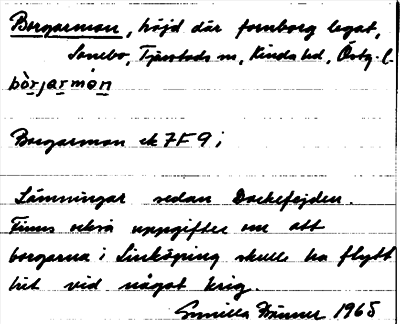 Borgarmon, höjd där fornborg legat,
Sonebo, Tjärstads sn, Kinda hd, Östg. l.
bòrjarmón
Borgarmon ek 7F9i
Lämningar sedan Dackefejden.
Finns också uppgifter om att
borgarna i Linköping skulle ha flytt
hit vid något krig.
Gunilla 1965